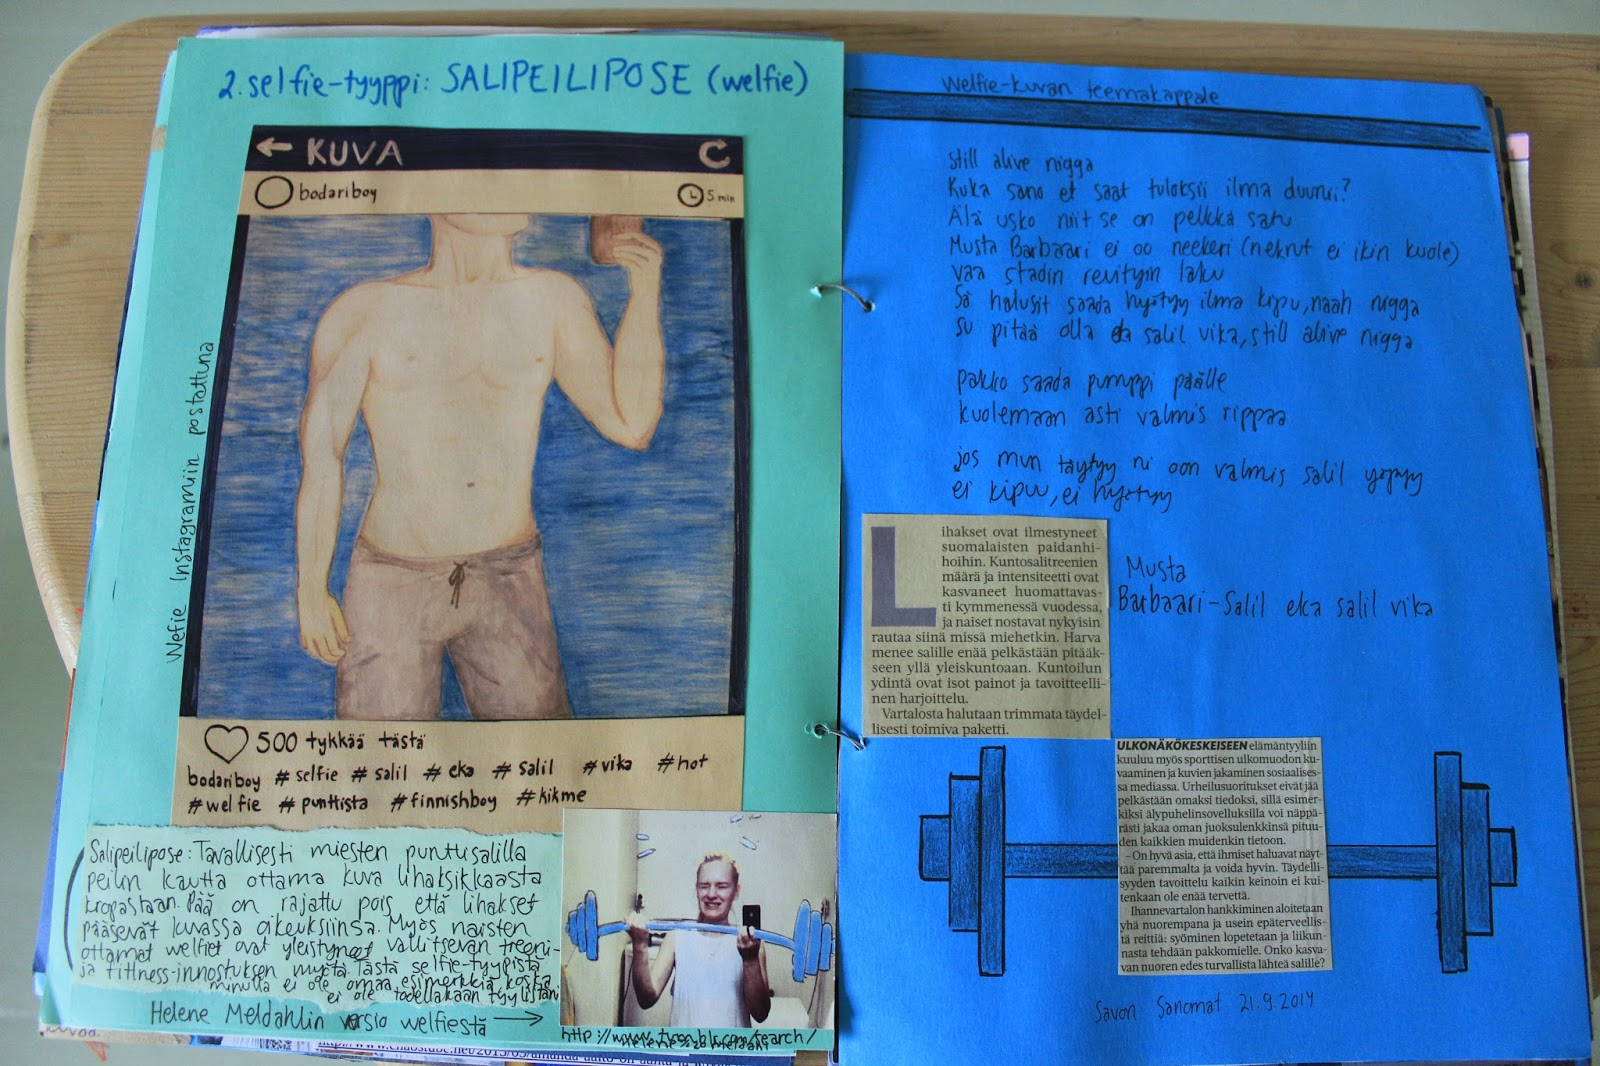 2. selfie-tyyppi: SALIPEILIPOSE (welfie)
Wefie Instagramiin postattuna
← KUVA
bodariboy
5 min
500 tykkää tästä
bodariboy # selfie # salil # eka # salil # vika # hot
# welfie # punttista # finnishboy # kikme
Salipeilipose: Tavallisesti miesten puntisalilla
peilin kautta ottama kuva lihaksikkaasta
kropastaan. Pää on rajattu pois että lihakset
pääsevät kuvassa oikeuksiinsa. Myös naisten
ottamat welfiet ovat yleistyneet vallitsevan treeni-
ja fittness-innostuksen myötä. Tästä selfie-tyypistä
minulla ei ole omaa esimerkkiä, koska
ei ole todellakaan tyylistäni
Helene Meldahlin versio welfiestä →
Welfie-kuvan teemakappale
still alive nigga
Kuka sano et saat tuloksii ilma duunii?
Älä usko niit se on pelkkä satu
Musta Barbaari ei oo neekeri (nekrut ei ikin kuole)
vaa stadin revityin laku
Sä halusit saada hyötyy ilma kipu, naah nigga
su pitää olla eka salil vika, still alive nigga
pakko saada pumppi päälle
kuolemaan asti valmis rippaa
jos mun täytyy ni oon valmis salil yöpyy
ei kipuu, ei hyötyy
Musta
Barbaari - Salil eka salil vika
Lihakset ovat ilmestyneet
suomalaisten paidanhi-
hoihin. Kuntosalitreenien
määrä ja intensiteetti ovat
kasvaneet huomattavas-
ti kymmenessä vuodessa,
ja naiset nostavat nykyisin
rautaa siinä missä miehetkin. Harva
menee salille enää pelkästään pitääk-
seen yllä yleiskuntoaan. Kuntoilun
ydintä ovat isot painot ja tavoitteelli-
nen harjoittelu.
Vartalosta halutaan trimmata täydel-
lisesti toimiva paketti.
ULKONÄKÖKESKEISEEN elämäntyyliin
kuuluu myös sporttisen ulkomuodon ku-
vaaminen ja kuvien jakaminen sosiaalises-
sa mediassa. Urheilusuoritukset eivät jää
pelkästään omaksi tiedoksi, sillä esimer-
kiksi älypuhelinsovelluksilla voi näppä-
rästi jakaa oman juoksulenkkinsä pituu-
den kaikkien muidenkin tietoon.
– On hyvä asia, että ihmiset haluavat näyt-
tää paremmalta ja voida hyvin. Täydelli-
syyden tavoittelu kaikin keinoin ei kui-
tenkaan ole enää tervettä.
Ihannevartalon hankkiminen aloitetaan
yhä nuorempana ja usein epäterveellis-
tä reittiä: syöminen lopetetaan ja liikun-
nasta tehdään pakkomielle. Onko kasva-
van nuoren edes turvallista lähteä salille?
Savon Sanomat 21.9.2014